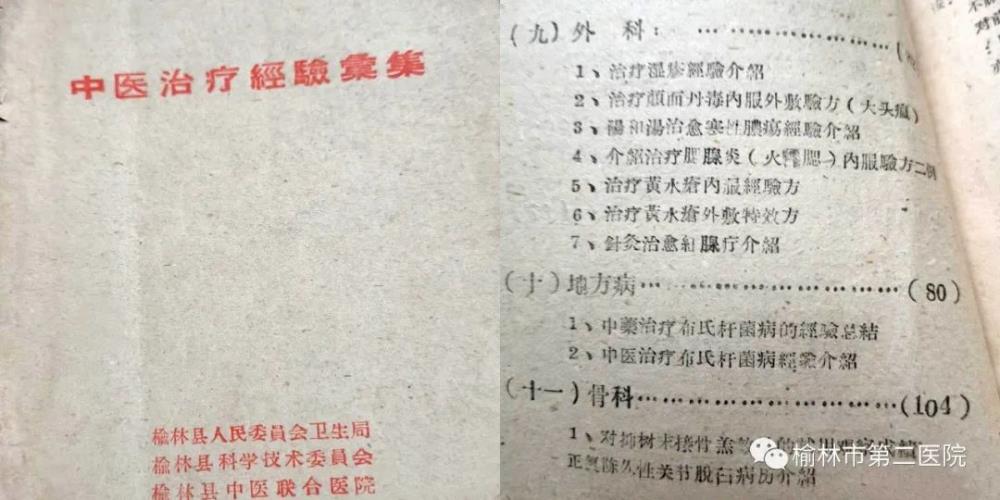 中医治疗經驗彙集
榆林县人民委員会卫生局
榆林县科学技术委員会
榆林县中医联合医院
(九)外 科：…………………(
1、治疗湿疹經驗介紹
2、治疗顏面丹毒內服外敷驗方(大头瘟)
3、湯和湯治愈寒性膿瘍經驗介紹
4、介紹治疗腮腺炎(火腮)內服驗方二例
5、治疗黃水瘡內服經驗方
6、治疗黃水瘡外敷特效方
7、針灸治愈紅腺疔介紹
(十)地方病…………………(80)
1、中藥治疗布氏杆菌病的經驗总結
2、中医治疗布氏杆菌病經驗介紹
(十一)骨科…………………(104)
1、对柳树末接骨
正氣除久性关节脫臼病历介紹
榆林市第二医院